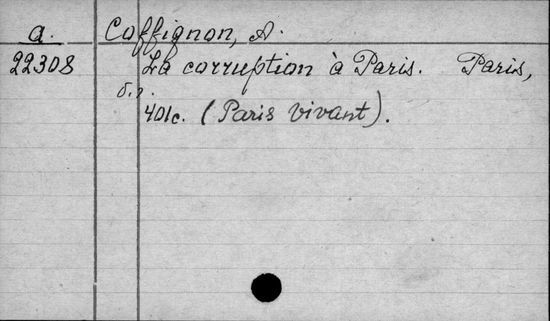 a. Coffignon, A.
22308 La corruption à Paris. Paris,
б.г.
401c. (Paris vivant).